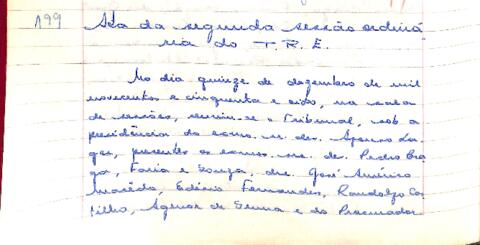 199 Ata da segunda sessão ordiná
ria do T. R. E.
No dia quinze de dezembro de mil
novecentos e cinquenta e oito, na sala
de sessões, reuniu-se o Tribunal, sob a
presidência do exmo. sr. des. Afonso La
ges, presentes os exmos. srs. des. Pedro Bra
ga, Faria e Souza, drs. José Américo
Macêdo, Edésio Fernandes,
Filho, Agenor de Senna e do Procurador